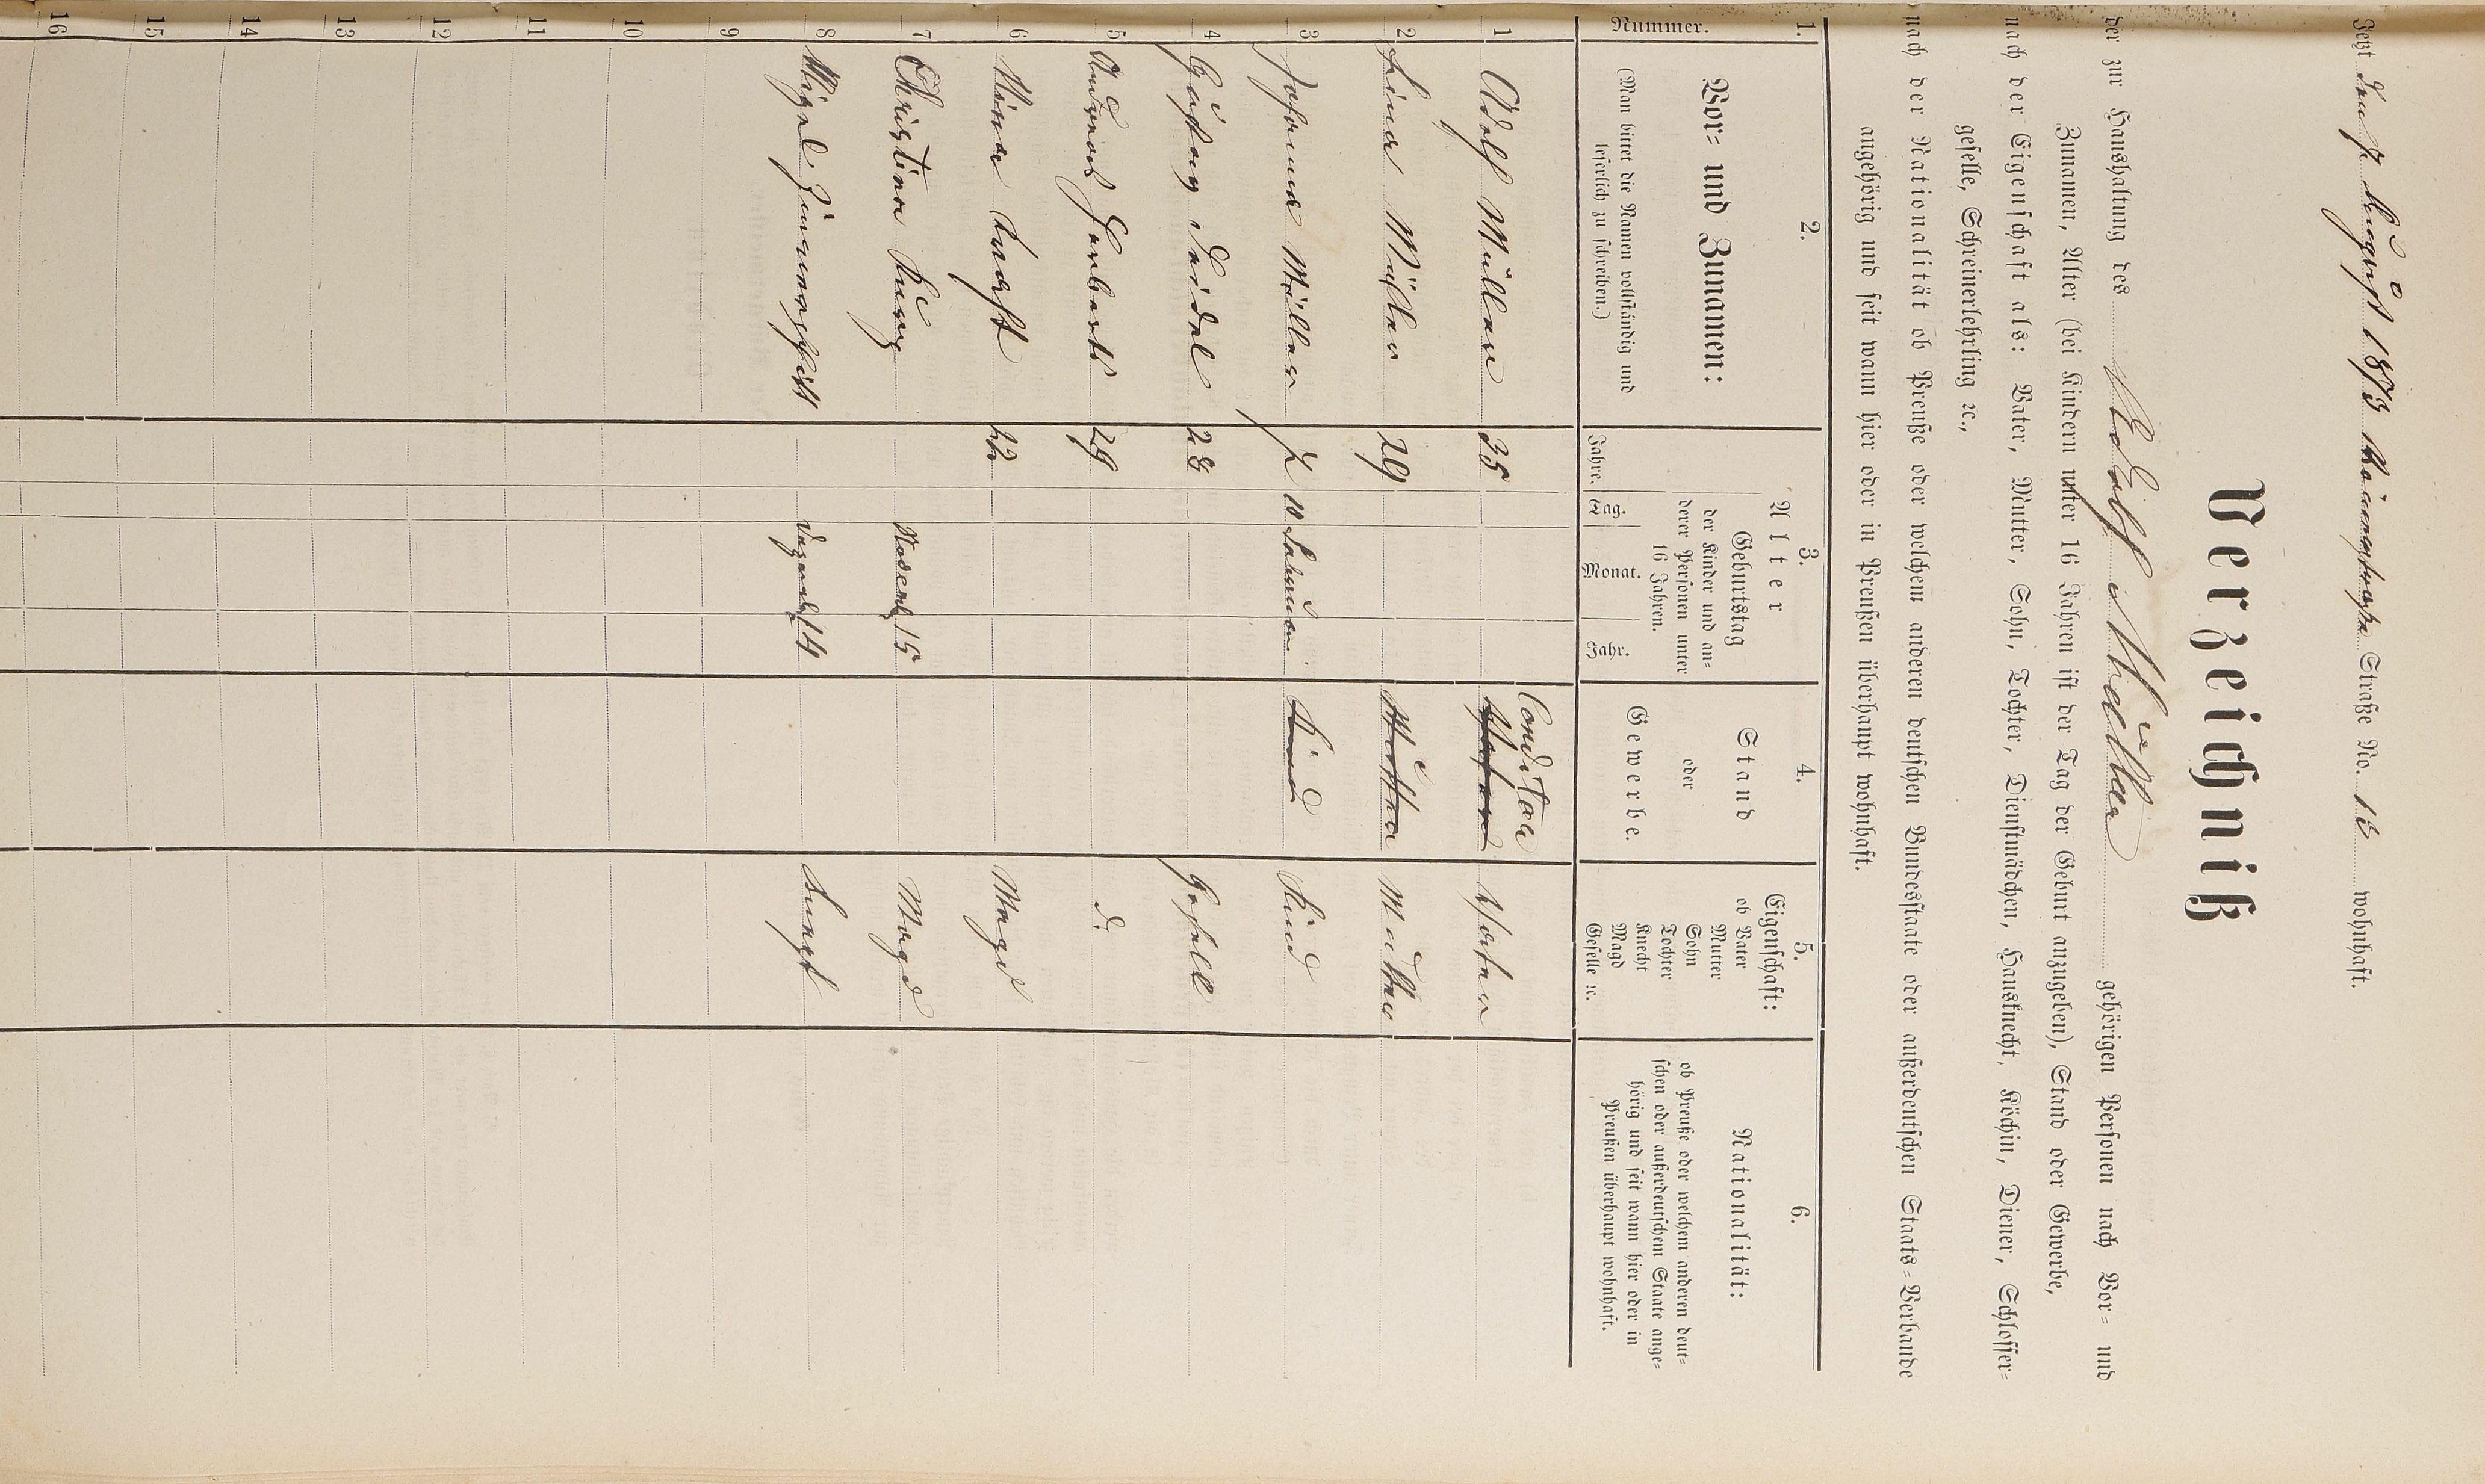 Jetzt 1873 Straße No. 18 wohnhaft.
Verzeichniß
der zur Haushaltung des Adolf Müller gehörigen Personen nach Vor- und
Zunamen, Alter (bei Kindern unter 16 Jahren ist der Tag der Geburt anzugeben), Stand oder Gewerbe,
nach der Eigenschaft als: Vater, Mutter, Sohn, Tochter, Dienstmädchen, Hausknecht, Köchin, Diener, Schlosser-
geselle, Schreinerlehrling ꝛc.,
nach der Nationalität ob Preuße oder welchem anderen deutschen Bundesstaate oder außerdeutschen Staats-Verbande
angehörig und seit wann hier oder in Preußen überhaupt wohnhaft.
1. 2. 3. 4. 5. 6.
Nummer.
Vor- und Zunamen:
(Man bittet die Namen vollständig und
leserlich zu schreiben.)
Alter
Geburtstag
der Kinder und an-
derer Personen unter
16 Jahren.
Jahre. Tag. Monat. Jahr.
Stand
oder
Gewerbe.
Eigenschaft:
ob Vater
Mutter
Sohn
Tochter
Knecht
Magd
Geselle ꝛc.
Nationalität:
ob Preuße oder welchem anderen deut-
schen oder außerdeutschem Staate ange-
hörig und seit wann hier oder in
Preußen überhaupt wohnhaft.
Conditor
1 Adolf Müller 35 Vater Vater
2 Lina Müller 29 Mutter Mutter
3 Johanna Müller Kind Kind
4 Gustav Seidel 28 Geselle
5 Andreas 29 d.
6 Mina 22 Magd
7 Christine 15 Magd
8 14
9
10
11
12
13
14
15
16